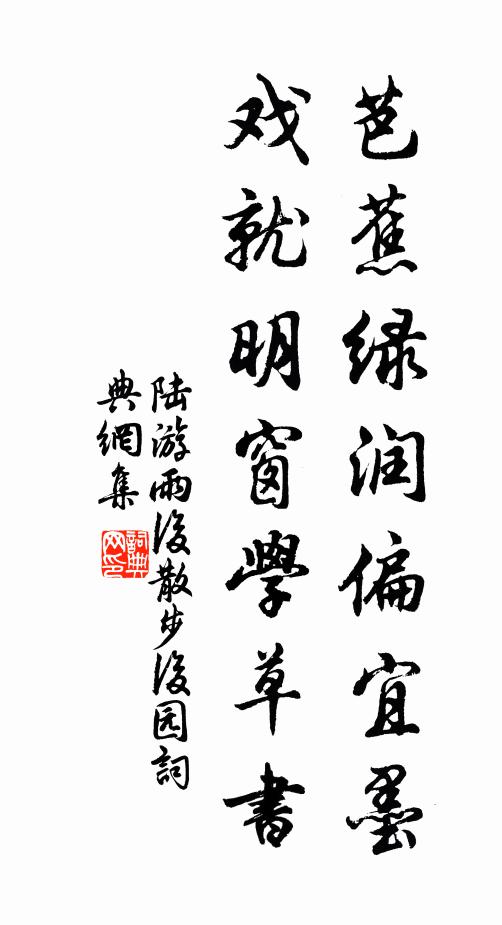 芭蕉绿润偏宜墨
戏就明窗學草書
陆游雨後散步後园詞
典網集
詞典网印